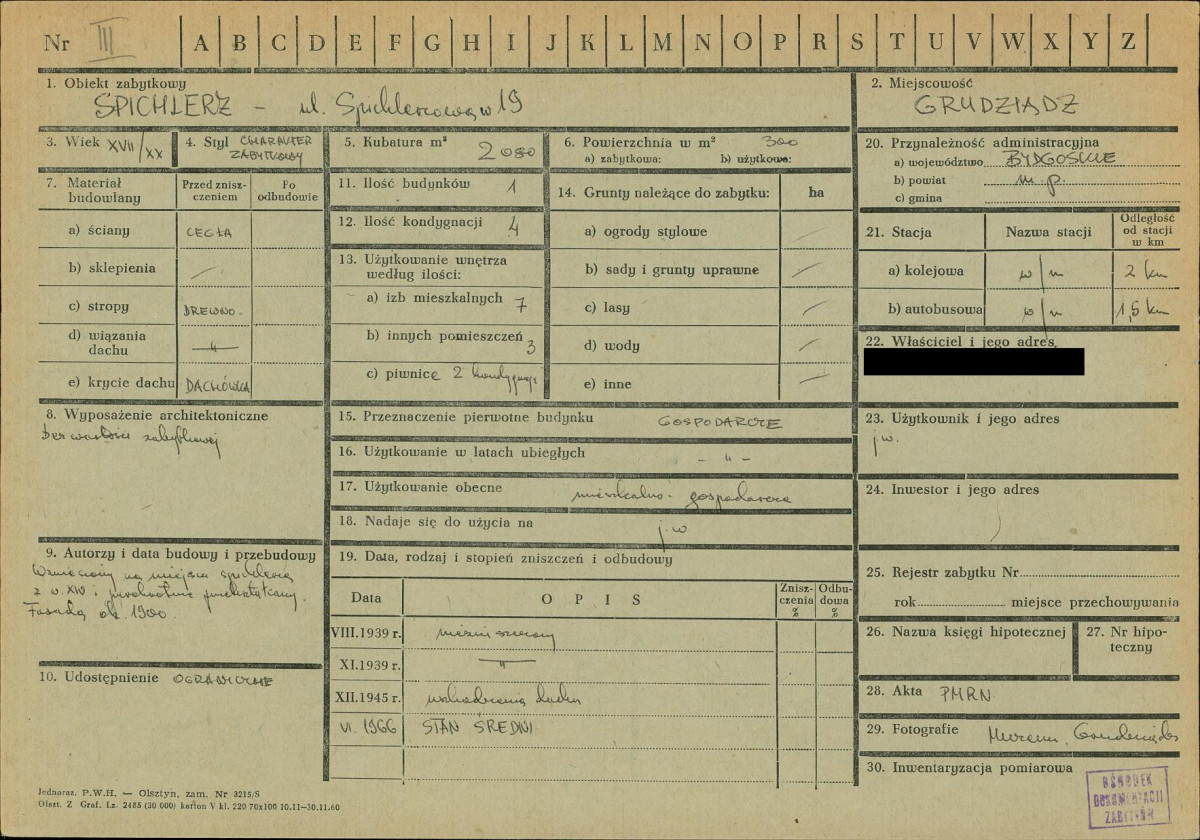 Nr III A B C D E F G H I J K L M N O P R S T U V W X Y Z
1. Obiekt zabytkowy
SPICHLERZ – ul. Spichlerzowa 19
2. Miejscowość
GRUDZIĄDZ
3. Wiek XVII/XX
4. Styl CHARAKTER
ZABYTKOWY
5. Kubatura m³ 2080
6. Powierzchnia w m² 300
a) zabytkowa: b) użytkowa:
20. Przynależność administracyjna
a) województwo BYDGOSKIE
b) powiat m.p.
c) gmina
7. Materiał
budowlany
Przed znisz-
czeniem
Po
odbudowie
a) ściany CEGŁA
b) sklepienia —
c) stropy DREWNO.
d) wiązania
dachu —"—
e) krycie dachu DACHÓWKA
11. Ilość budynków 1
12. Ilość kondygnacji 4
13. Użytkowanie wnętrza
według ilości:
a) izb mieszkalnych 7
b) innych pomieszczeń 3
c) piwnice 2 kondygnacje
14. Grunty należące do zabytku: ha
a) ogrody stylowe —
b) sady i grunty uprawne —
c) lasy —
d) wody —
e) inne —
21. Stacja Nazwa stacji Odległość
od stacji
w km
a) kolejowa w/m 2 km
b) autobusowa w/m 1,5 km
22. Właściciel i jego adres
8. Wyposażenie architektoniczne
bez wartości zabytkowej
15. Przeznaczenie pierwotne budynku GOSPODARCZE
16. Użytkowanie w latach ubiegłych – " –
17. Użytkowanie obecne mieszkalno-gospodarcze
18. Nadaje się do użycia na j.w
23. Użytkownik i jego adres
j.w.
24. Inwestor i jego adres
9. Autorzy i data budowy i przebudowy
Wzniesiony na miejscu spichlerza
z w. XIV i przekształcany.
Fasada ok. 1900.
10. Udostępnienie OGRANICZONE
19. Data, rodzaj i stopień zniszczeń i odbudowy
Data OPIS Znisz-
czenia
%
Odbu-
dowa
%
VIII.1939 r. niezniszczony
XI.1939 r. —"—
XII.1945 r. uszkodzenia dachu
VI. 1966 STAN ŚREDNI
25. Rejestr zabytku Nr
rok miejsce przechowywania
26. Nazwa księgi hipotecznej
27. Nr hipo-
teczny
28. Akta PMRN
29. Fotografie Muzeum. Grudziądz
30. Inwentaryzacja pomiarowa
OŚRODEK
DOKUMENTACJI
ZABYTKÓW
Jednoraz. P.W.H. — Olsztyn, zam. Nr 3215/S
Olszt. Z Graf. Lz. 2485 (30 000) karton V kl. 220 70x100 10.11—30.11.60